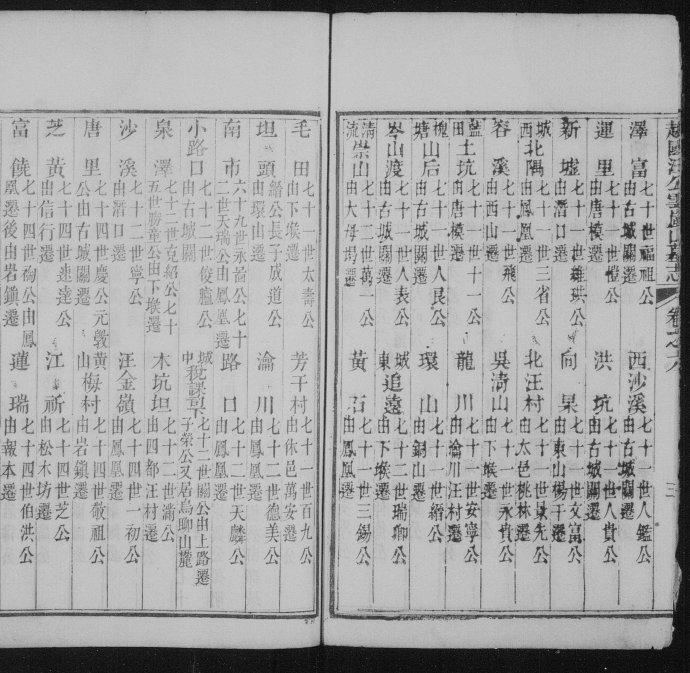 越國汪公雲嵐山墓志 卷之六 三
澤富 七十世福祖公由古城關遷
西沙溪 七十一世人鑑公由古城關遷
運里 七十一世愷公由唐模遷
洪坑 七十一世人貴公由古城關遷
新墟 七十一世雄珙公由潛口遷
向杲 七十一世文富公由東山楊干遷
城北隅 七十一世三省公由鳳凰遷
北汪村 七十一世 先公由太邑桃林遷
容溪 七十一世飛公由西山遷
吳清山 七十一世永貴公由下堠遷
藍田土坑 七十一世十一公由唐模遷
龍川 七十一世安寧公由瀹川汪村遷
槐塘山后 七十一世人良公由古城關遷
環山 七十一世縉公由銅山遷
岑山渡 七十二世人表公由古城關遷
城東追遠 七十二世瑞卿公由下堠遷
清流崇山 七十二世萬一公由大母堨遷
黃石 七十一世三錫公由鳳凰遷
毛田 七十一世太壽公由下堠遷
芳干村 七十一世百九公由休邑萬安遷
坦頭 縉公長子成道公由環山遷
瀹川 七十二世德美公由鳳凰遷
南市 六十九世永嵩公七十二世天瑞公由鳳凰遷
路口 七十二世天麟公由鳳凰遷
小路口 七十二世俊臚公由古城關
城中稅課司下 七十二世關公由上路遷子榮公又居烏聊山麓
泉澤 七十二世克紹公七十五世勝童公由下堠遷
木坑坦 七十二世滿公由四都汪村遷
沙溪 七十二世寧公由潛口遷
汪金嶺 七十四世一初公由鳳凰遷
唐里 七十四世慶公元敦公由古城關遷
黃梅村 七十四世敬祖公山由岩鎮遷
芝黃 七十四世速達公由信行遷
江祈 七十四世芝公由松木坊遷
富饒 七十四世珣公由鳳凰遷後由岩鎮遷
蓮瑞 七十四世伯洪公由報本遷